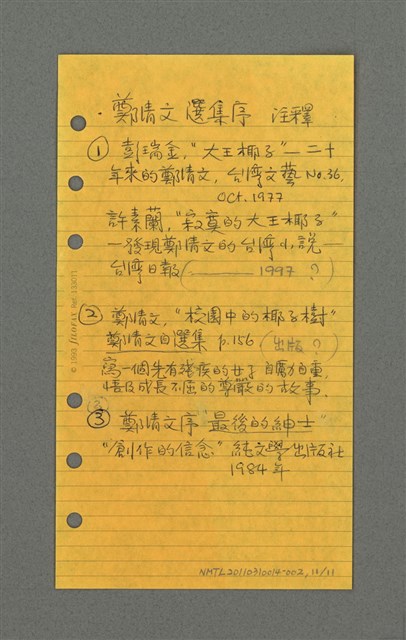 · 鄭清文選集序 注釋
① 彭瑞金，"大王椰子"—二十
年來的鄭清文，台灣文藝 No.36,
Oct. 1977
許素蘭，"寂寞的大王椰子"
—發現鄭清文的台灣小說—
台灣日報（——— 1997 ?）
② 鄭清文，"校園中的椰子樹"
鄭清文自選集 p.156（出版？）
寫一個先有殘疾的女子自勵自重，
悟及成長不屈的尊嚴的故事．
③ 鄭清文序 "最後的紳士"
"創作的信念" 純文學出版社
1984年
NMTL20110310014-002, 11/11